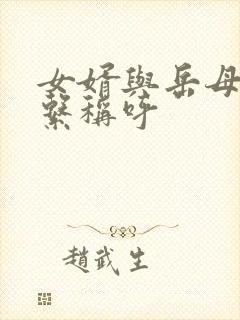 女婿與岳母
繫稱呼
趙武生